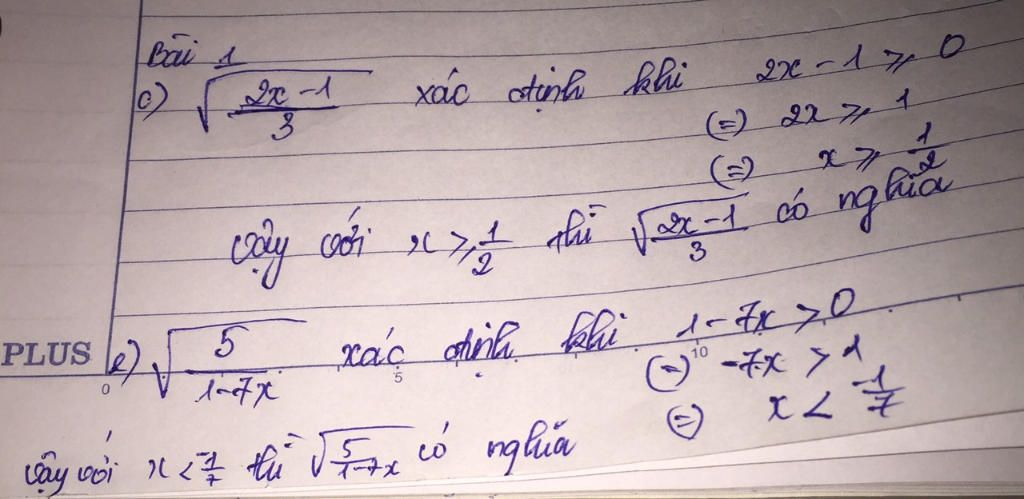 Bài 1
c) √((2x-1)/3) xác định khi 2x - 1 ⩾ 0
(=) 2x ⩾ 1
(=) x ⩾ 1/2
Vậy với x ⩾ 1/2 thì √((2x-1)/3) có nghĩa
PLUS
e) √(5/(1-7x)) xác định khi 1-7x > 0
(=) -7x > 1
(=) x < -1/7
Vậy với x < -1/7 thì √(5/(1-7x)) có nghĩa
0 5 10